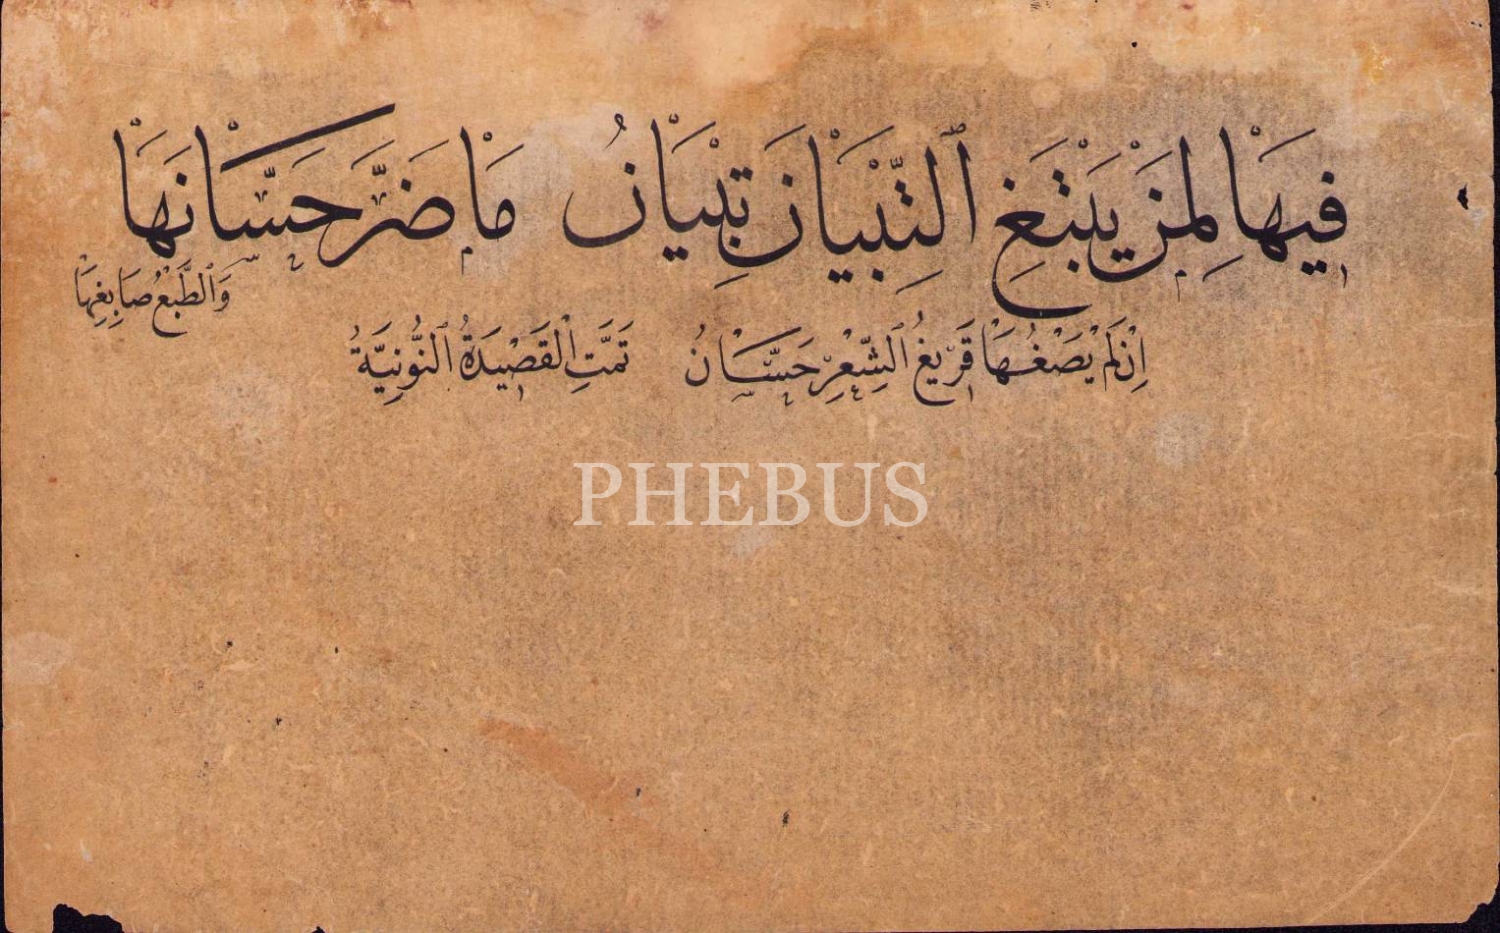 فِيهَا لِمَنْ يَبْتَغِ ٱلتِّبْيَانَ تِبْيَانُ مَا ضَرَّ حَسَّانَهَا
وَٱلطَّبْعُ صَابِغِهَا
اِنْ لَمْ يَصْغُهَا قَرْيِعُ ٱلشِّعْرِ حَسَّانُ تَمَّتِ الْقَصِيْدَةُ ٱلنُّونِيَّةُ
PHEBUS